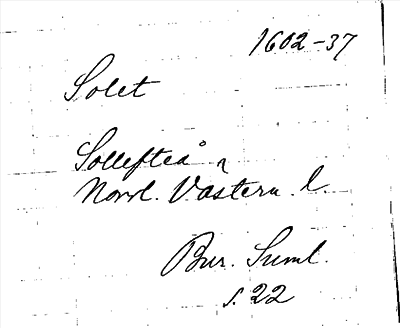 1602-37
Solet
Sollefteå
Norrl. Västern. l.
Bur. Suml.
s. 22